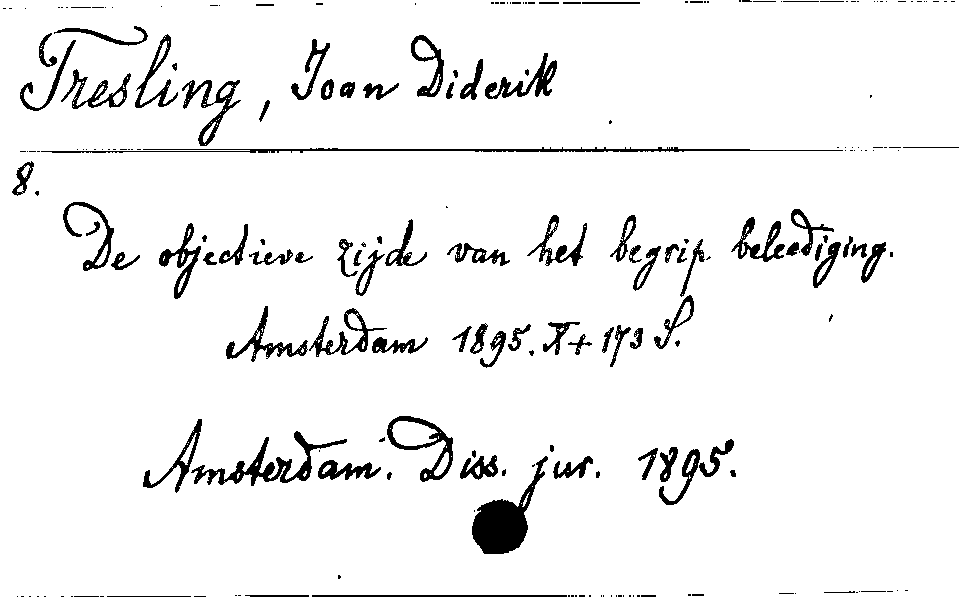 Tresling, Joan Diderik
8.
De objectieve zijde van het begrip beleediging.
Amsterdam 1895. X + 173 S.
Amsterdam. Diss. jur. 1895.